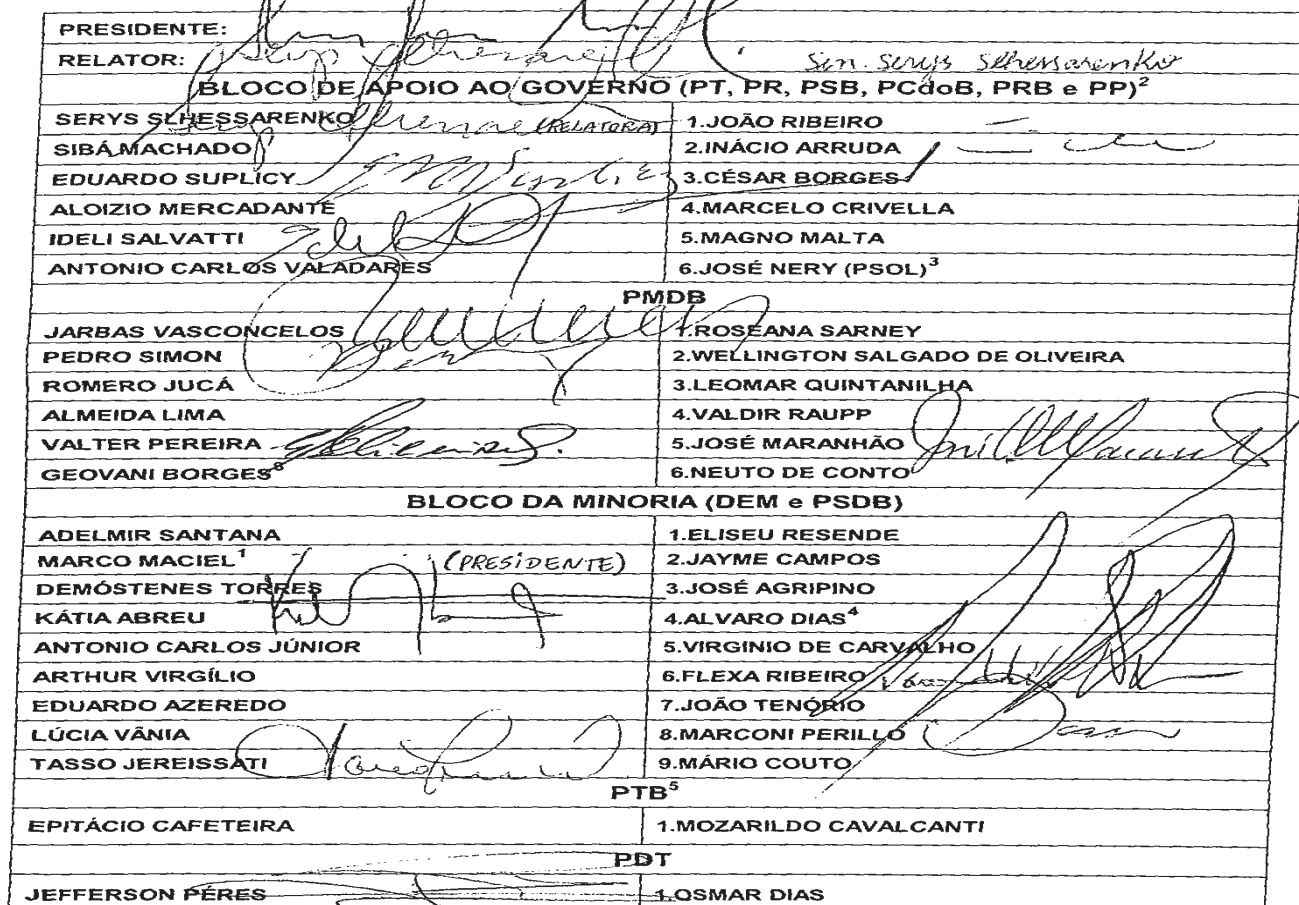 PRESIDENTE:
RELATOR: Sen. Serys Slhessarenko
BLOCO DE APOIO AO GOVERNO (PT, PR, PSB, PCdoB, PRB e PP)²
SERYS SLHESSARENKO (RELATORA) 1.JOÃO RIBEIRO
SIBÁ MACHADO 2.INÁCIO ARRUDA
EDUARDO SUPLICY 3.CÉSAR BORGES
ALOIZIO MERCADANTE 4.MARCELO CRIVELLA
IDELI SALVATTI 5.MAGNO MALTA
ANTONIO CARLOS VALADARES 6.JOSÉ NERY (PSOL)³
PMDB
JARBAS VASCONCELOS 1.ROSEANA SARNEY
PEDRO SIMON 2.WELLINGTON SALGADO DE OLIVEIRA
ROMERO JUCÁ 3.LEOMAR QUINTANILHA
ALMEIDA LIMA 4.VALDIR RAUPP
VALTER PEREIRA 5.JOSÉ MARANHÃO
GEOVANI BORGES⁶ 6.NEUTO DE CONTO
BLOCO DA MINORIA (DEM e PSDB)
ADELMIR SANTANA 1.ELISEU RESENDE
MARCO MACIEL¹ (PRESIDENTE) 2.JAYME CAMPOS
DEMÓSTENES TORRES 3.JOSÉ AGRIPINO
KÁTIA ABREU 4.ALVARO DIAS⁴
ANTONIO CARLOS JÚNIOR 5.VIRGINIO DE CARVALHO
ARTHUR VIRGÍLIO 6.FLEXA RIBEIRO
EDUARDO AZEREDO 7.JOÃO TENÓRIO
LÚCIA VÂNIA 8.MARCONI PERILLO
TASSO JEREISSATI 9.MÁRIO COUTO
PTB⁵
EPITÁCIO CAFETEIRA 1.MOZARILDO CAVALCANTI
PDT
JEFFERSON PÉRES 1.OSMAR DIAS